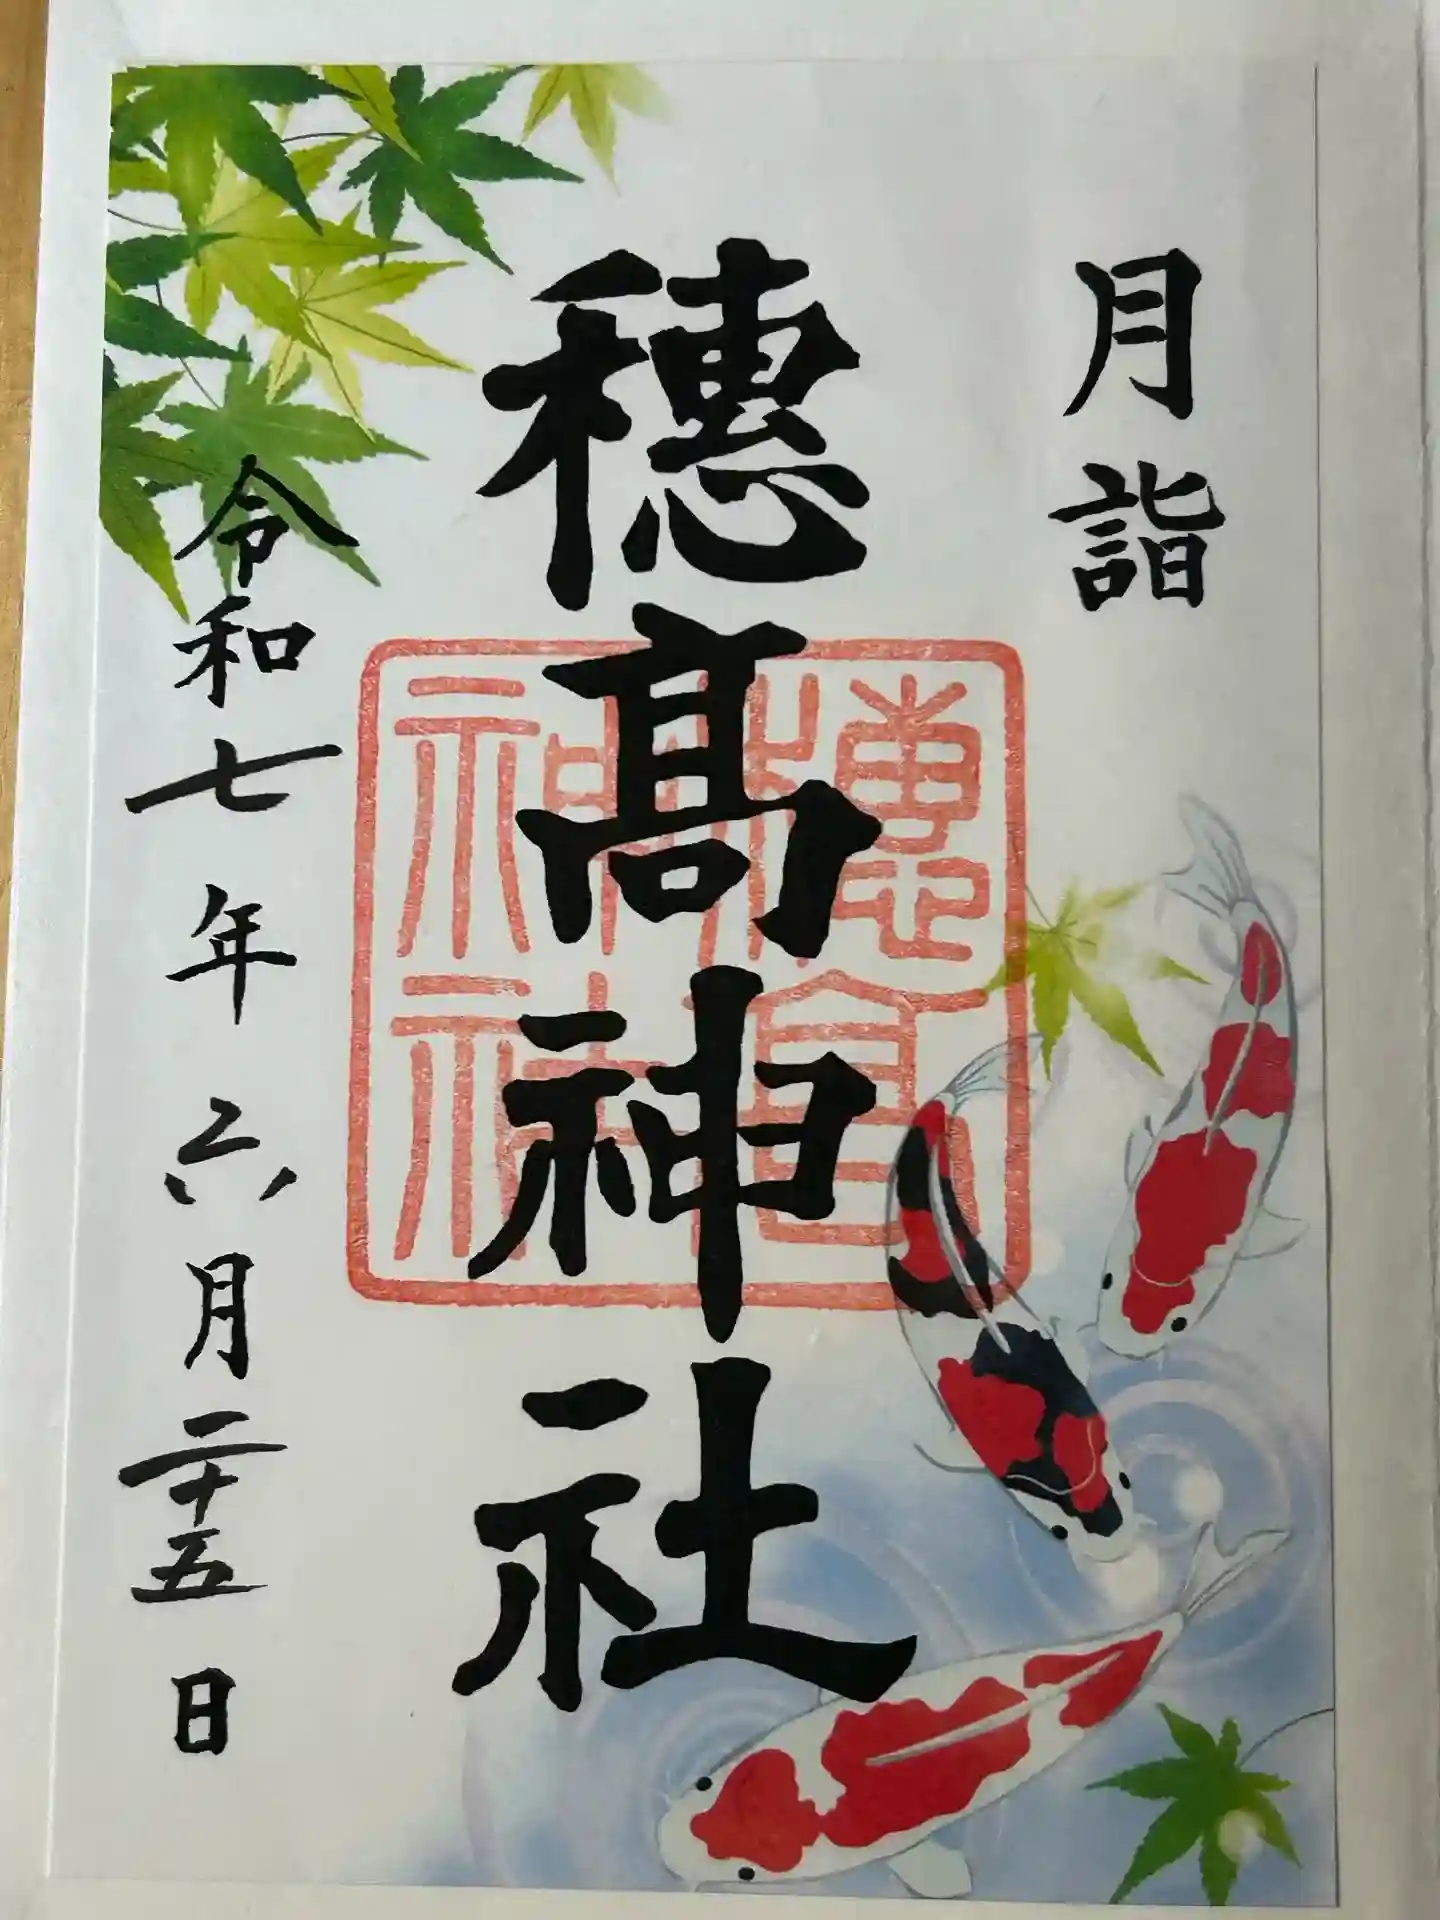 月詣
穂髙神社
穗髙神社
令和七年六月二十五日